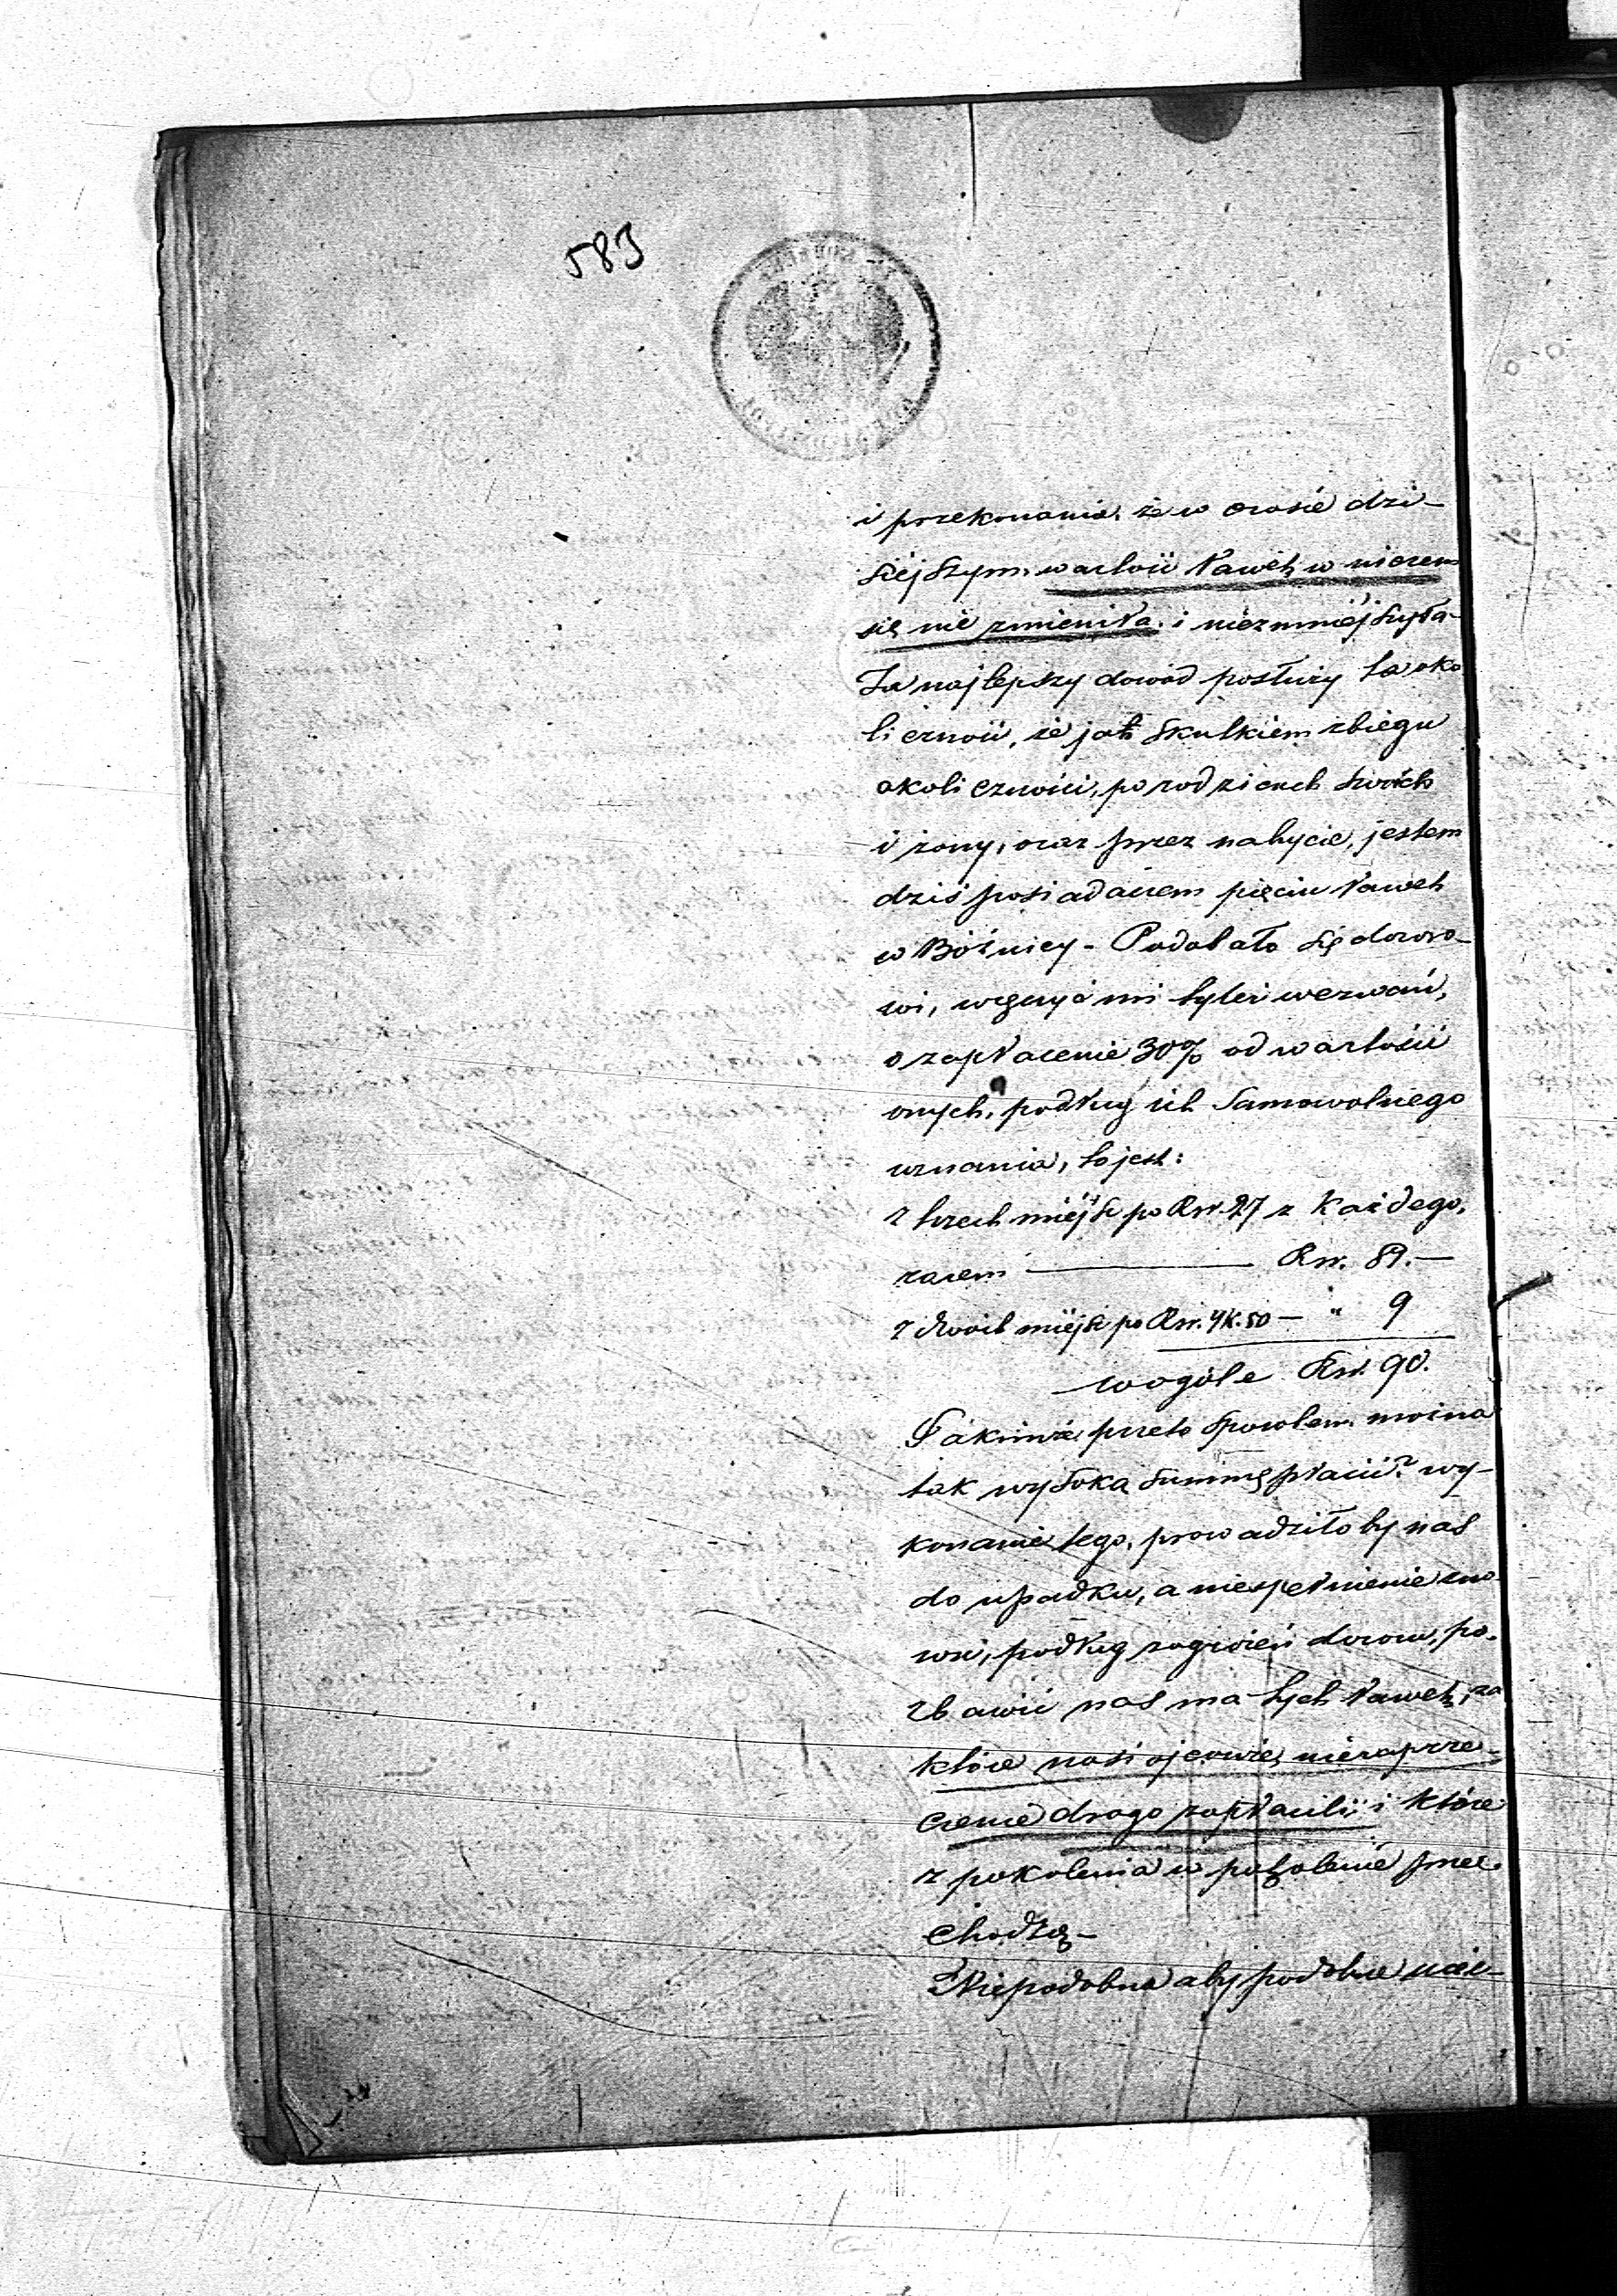 583
i przekonania, że w czasie dzi-
siéjszym wartość ławek w niczem
się nie zmieniła i niezmniéjszyła-
Za najlepszy dowód posłuży ta oko
liczność, że jak skutkiem zbiegu
okoliczności, po rodzicach swoich
i żony, oraz przez nabycie, jestem
dziś posiadaczem pięciu ławek
w Bóźnicy - Podobało się dozoro-
wi, wręczyć mi tyleż wezwań,
o zapłacenie 30% od wartości
onych, podług ich samowolnego
uznania, to jest:
z trzech miéjsc po Rsr. 27 z każdego,
razem Rsr. 81.-
z dwóch miejsc po Rsr. 4 k. 50 - " 9
wogóle Rsr. 90.
Jakimże przeto sposobem można
tak wysoką summę płacić? wy-
konanie tego, prowadziłoby nas
do upadku, a niespełnienie zno-
wu, podług zagrożeń dozoru, po-
zbawić nas ma tych ławek, za
które nasi ojcowie, niezaprze-
czenie drogo zapłacili; i które
z pokolenia w pokolenie prze-
chodzą-
Niepodobna aby podobne